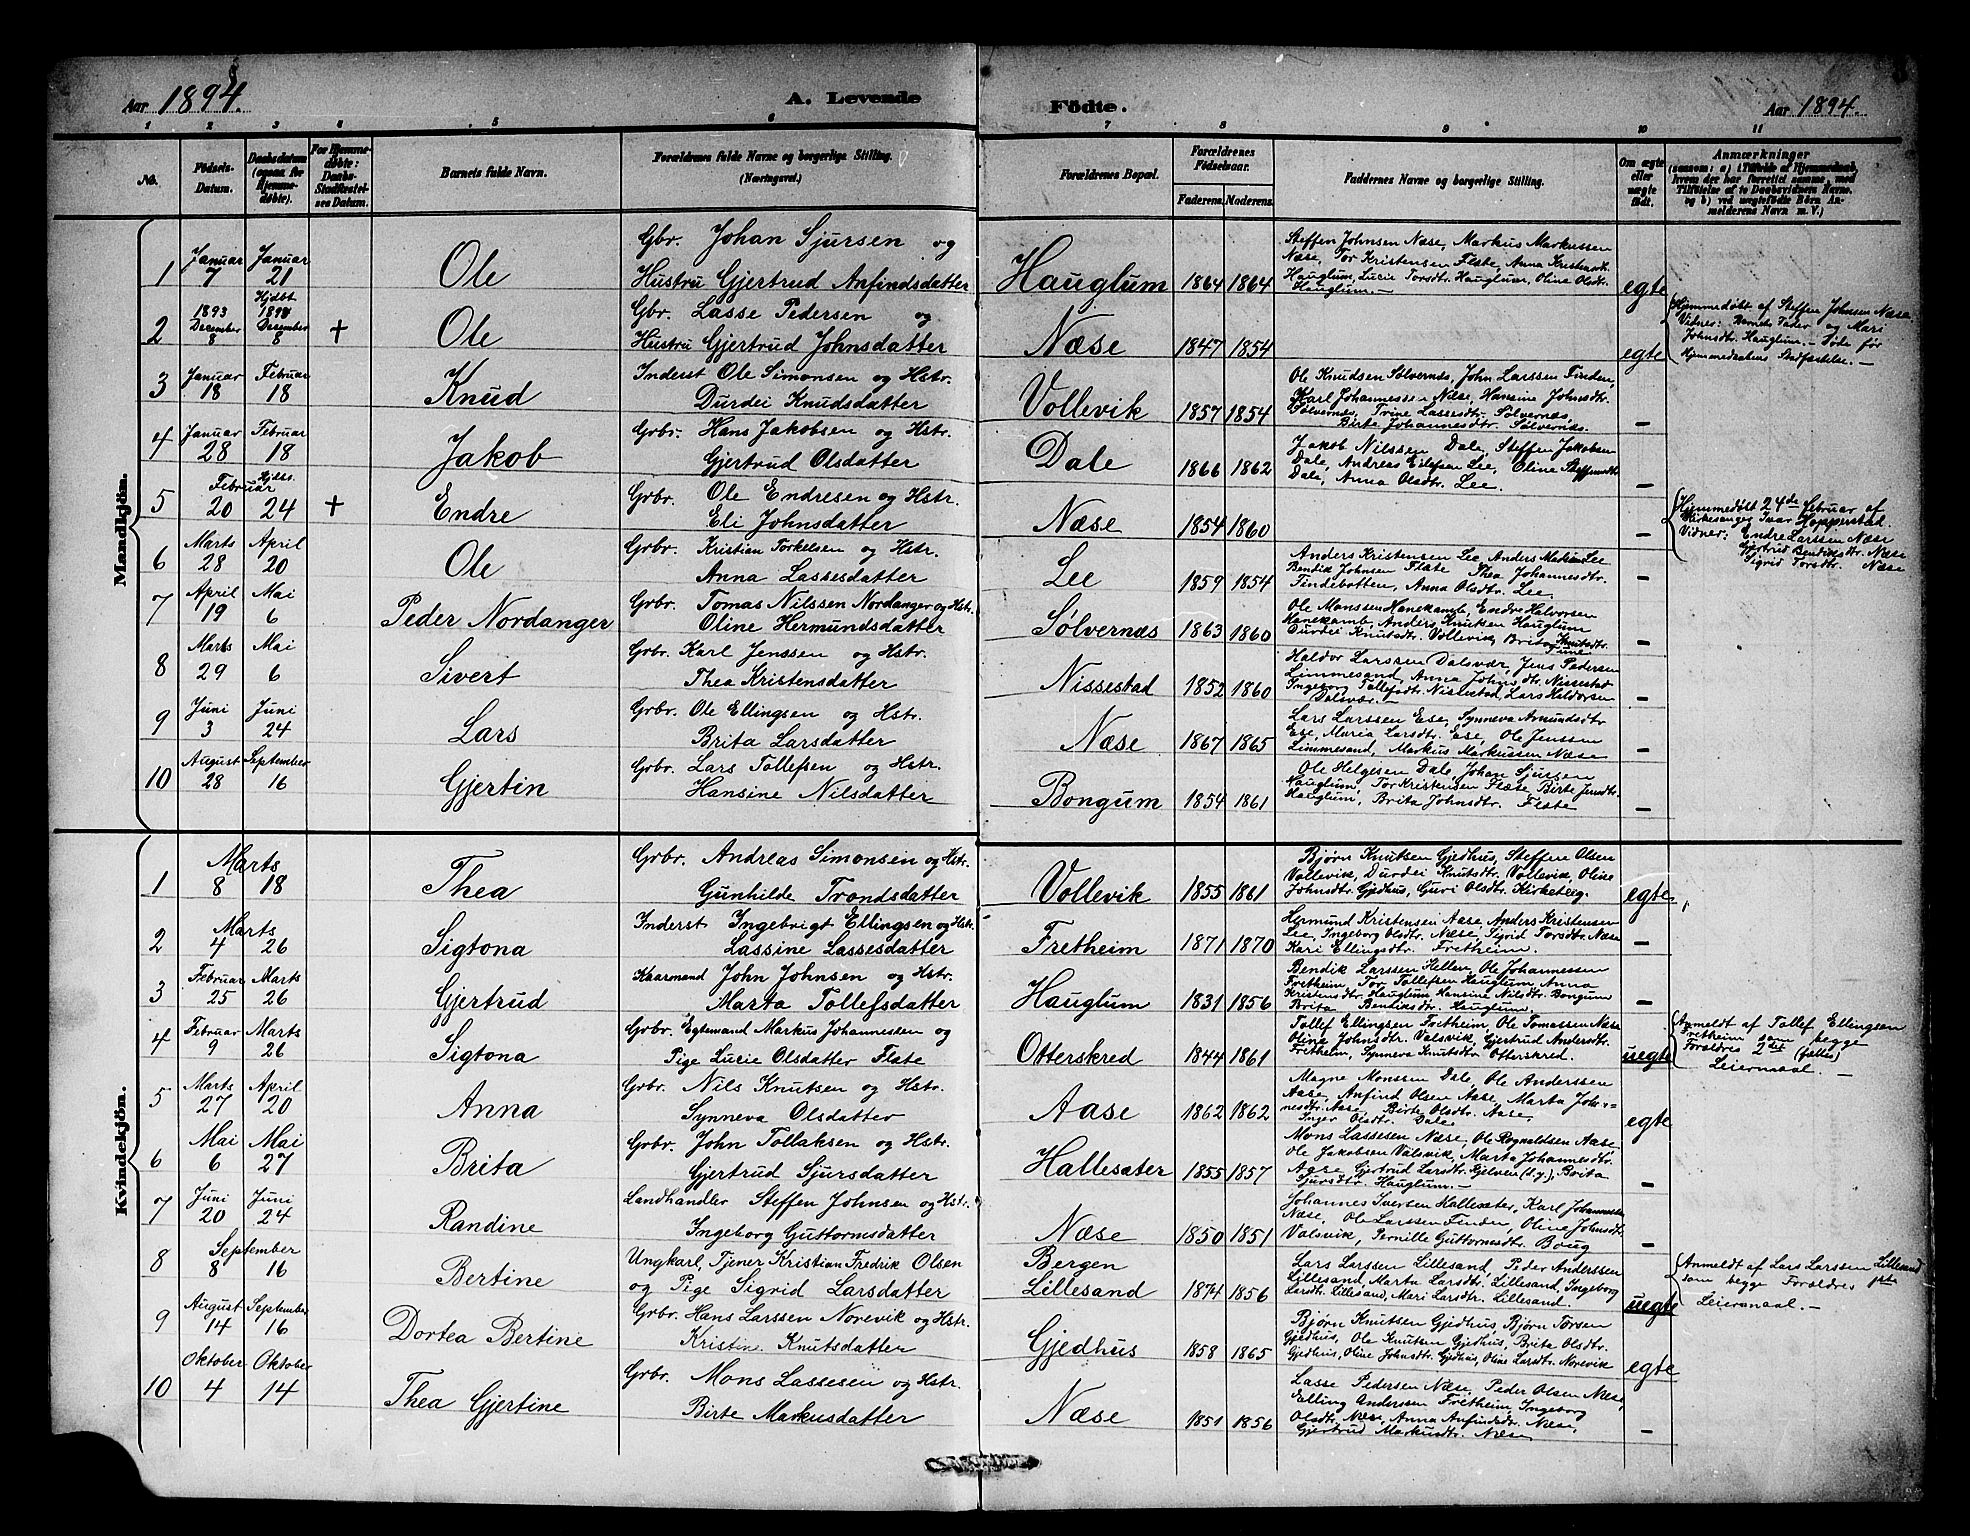 Aar 1894.
A. Levende Födte.
Aar 1894.
1 2 3 4 5 6 7 8 9 10 11
No.
Födsels-Datum.
Daabsdatum (ogsaa for Hjemmedöbte).
For Hjemmedöbte: Daabs-Stadfæstelses Datum.
Barnets fulde Navn.
Forældrenes fulde Navne og borgerlige Stilling. (Næringsvei.)
Forældrenes Bopæl.
Forældrenes Födselsaar.
Faderens. Moderens.
Faddernes Navne og borgerlige Stilling.
Om ægte eller uægte födt.
Anmærkninger
(saasom: a) i Tilfælde af Hjemmedaab, hvem der har forrettet samme, med Tilföielse af to Daabsvidners Navne, og b) ved uægtefödte Börn Anmelderens Navn m. V.)
Mandkjön.
1 Januar 7 Januar 21 Ole Gbr. Johan Sjursen og Hustru Gjertrud Anfindsdatter Hauglum 1864 1864
Steffen Johnsen Næse, Markus Markussen
Næse, Tor Kristensen Flate, Anna Kristensdtr.
Hauglum, Lucie Torsdtr. Hauglum, Oline Olsdtr.
Hauglum.— egte
2 1893 December 8 Hjdbt 1893 December 8 + Ole Gbr. Lasse Pedersen og Hustru Gjertrud Johnsdatter Næse 1847 1854 egte
Hjemmedøbt af Steffen Johnsen Næse.
Vidner: Barnets Fader og Mari
Johnsdtr. Hauglum.— Døde før
Hjemmedaabens Stadfæstelse.—
3 Januar 18 Februar 18 Knud Inderst Ole Simonsen og Hstr. Durdei Knudsdatter Vollevik 1857 1854
Ole Knudsen Sølvernæs, John Larssen Finden,
Karl Johannessen Næse, Hansine Johnsdtr.
Sølvernæs, Trine Lassesdtr. Sølvernæs,
Birte Johannesdtr. Sølvernæs. —
4 Januar 28 Februar 18 Jakob Grbr. Hans Jakobsen og Hstr. Gjertrud Olsdatter Dale 1866 1862
Jakob Nilssen Dale, Steffen Jakobsen
Dale, Andreas Eilefsen Lee, Oline Steffensdtr.
Dale, Anna Olsdtr. Lee. —
5 Februar 20 Hjdbt. 24 + Endre Grbr. Ole Endresen og Hstr. Eli Johnsdatter Næse 1854 1860 —
Hjemmedøbt 24de Februar af
Kirkesanger Ivar Hopperstad
Vidner: Endre Larssen Næse
Gjertrud Bendiksdtr. Næse
Sigrid Torsdtr. Næse
6 Marts 28 April 20 Ole Grbr. Kristian Torkelsen og Hstr. Anna Lassesdatter Lee 1859 1854
Anders Kristensen Lee, Anders Madsen Lee
Bendik Johnsen Flate, Thea Johannesdtr.
Tindebotten, Anna Olsdtr. Lee. —
7 April 19 Mai 6 Peder Nordanger Grbr. Tomas Nilssen Nordanger og Hstr. Oline Hermundsdatter Sølvernæs 1863 1860
Ole Monssen Hanekamb, Endre Halvorsen
Hanekamb, Anders Knutsen Hauglum
Durdei Knutsdtr. Vollevik, Brita Knutsdtr. —
8 Marts 29 Mai 6 Sivert Grbr. Karl Jenssen og Hstr. Thea Kristensdatter Nissestad 1852 1860
Haldor Larssen Dalsvær, Jens Pedersen
Limmesand, Anna Johnsdtr. Nissestad
Ingeborg Tollefsdtr. Nissestad, Lars Haldorsen
Dalsvær.— —
9 Juni 3 Juni 24 Lars Grbr. Ole Ellingsen og Hstr. Brita Larsdatter Næse 1867 1865
Lars Larssen Ese, Synneva Amundsdtr.
Ese, Maria Larsdtr. Ese, Ole Jenssen
Limmesand, Markus Markussen Næse —
10 August 28 September 16 Gjertin Grbr. Lars Tollefsen og Hstr. Hansine Nilsdatter Bongum 1854 1861
Ole Helgesen Dale, Johan Sjursen
Hauglum, Tor Kristensen Flate, Birte Jensdtr.
Hauglum, Brita Johnsdtr. Flate —
Kvindekjön.
1 Marts 8 18 Thea Grbr. Andreas Simonsen og Hstr. Gunhilde Trondsdatter Vollevik 1855 1861
Bjørn Knutsen Gjedhus, Steffen Olsen
Vollevik, Durdei Knutsdtr. Vollevik, Oline
Johnsdtr. Gjedhus, Guri Olsdtr. Kirketeig. egte
2 Marts 4 26 Sigtona Inderst Ingebrigt Ellingsen og Hstr. Lassine Lassesdatter Fretheim 1871 1870
Hermund Kristensen Aase, Anders Kristensen
Lee, Ingeborg Olsdtr. Næse, Sigrid Torsdtr. Næse
Kari Ellingsdtr. Fretheim. —
3 Februar 25 Marts 26 Gjertrud Kaarmand John Johnsen og Hstr. Marta Tollefsdatter Hauglum 1831 1856
Bendik Larssen Hellen, Ole Johannessen
Fretheim, Tor Tollefsen Hauglum, Anna
Kristensdtr. Hauglum, Hansine Nilsdtr. Bongum
Brita Bendiksdtr. Hauglum —
4 Februar 9 Marts 26 Sigtona Grbr. Egtemand Markus Johannessen og Pige Lucie Olsdatter Flate Otterskred 1844 1861
Tollef Ellingsen Fretheim, Ole Tomassen Næse
Oline Johnsdtr. Valsvik, Gjertrud Andersdtr.
Fretheim, Synneva Knutsdtr. Otterskred. uegte
Anmeldt af Tollef Ellingsen
Fretheim som begge
Forældres 2det (fælles)
Leiermaal.—
5 Marts 27 April 20 Anna Grbr. Nils Knutsen og Hstr. Synneva Olsdatter Aase 1862 1862
Magne Monssen Dale, Ole Anderssen
Aase, Anfind Olsen Aase, Marta Joh-
nesdtr. Aase, Birte Olsdtr. Aase.
Inger Olsdtr. Dale egte
6 Mai 6 Mai 27 Brita Grbr. John Tollaksen og Hstr. Gjertrud Sjursdatter Hallesæter 1855 1857
Mons Lassesen Næse, Ole Rognaldsen Aase
Ole Jakobsen Valsvik, Marta Johannesdtr.
Aase, Gjertrud Larsdtr. Gjelven (d.y.), Brita
Sjursdtr. Hauglum.— —
7 Juni 20 Juni 24 Randine Landhandler Steffen Johnsen og Hstr. Ingeborg Guttormsdatter Næse 1850 1851
Johannes Iversen Hallesæter, Karl Johannessen
Næse, Ole Larssen Finden, Oline Johnsdtr.
Valsvik, Pernille Guttormsdtr. Boug —
8 September 8 16 Bertine Ungkarl, Tjener Kristian Fredrik Olsen og Pige Sigrid Larsdatter Bergen Lillesand 1874 1856
Lars Larssen Lillesand, Peder Anderssen
Lillesand, Marta Larsdtr. Lillesand, Ingeborg
Larsdtr. Lillesand, Mari Larsdtr. Lillesand. uegte
Anmeldt af Lars Larssen Lillesand
som begge Forældres 1ste
Leiermaal.—
9 August 14 September 16 Dortea Bertine Grbr. Hans Larssen Norevik og Hstr. Kristin Knutsdatter Gjedhus 1858 1865
Bjørn Knutsen Gjedhus, Bjørn Torsen
Gjedhus, Ole Knutsen Gjedhus, Brita Olsdtr.
Gjedhus, Oline Johnsdtr. Gjedhus, Oline Larsdtr. Norevik egte
10 Oktober 4 Oktober 14 Thea Gjertine Grbr. Mons Lassesen og Hstr. Birte Markusdatter Næse 1851 1856
Lasse Pedersen Næse, Peder Olsen Næse,
Elling Anderssen Fretheim, Ingeborg
Olsdtr. Næse, Anna Anfindsdtr. Næse,
Gjertrud Markusdtr. Næse —